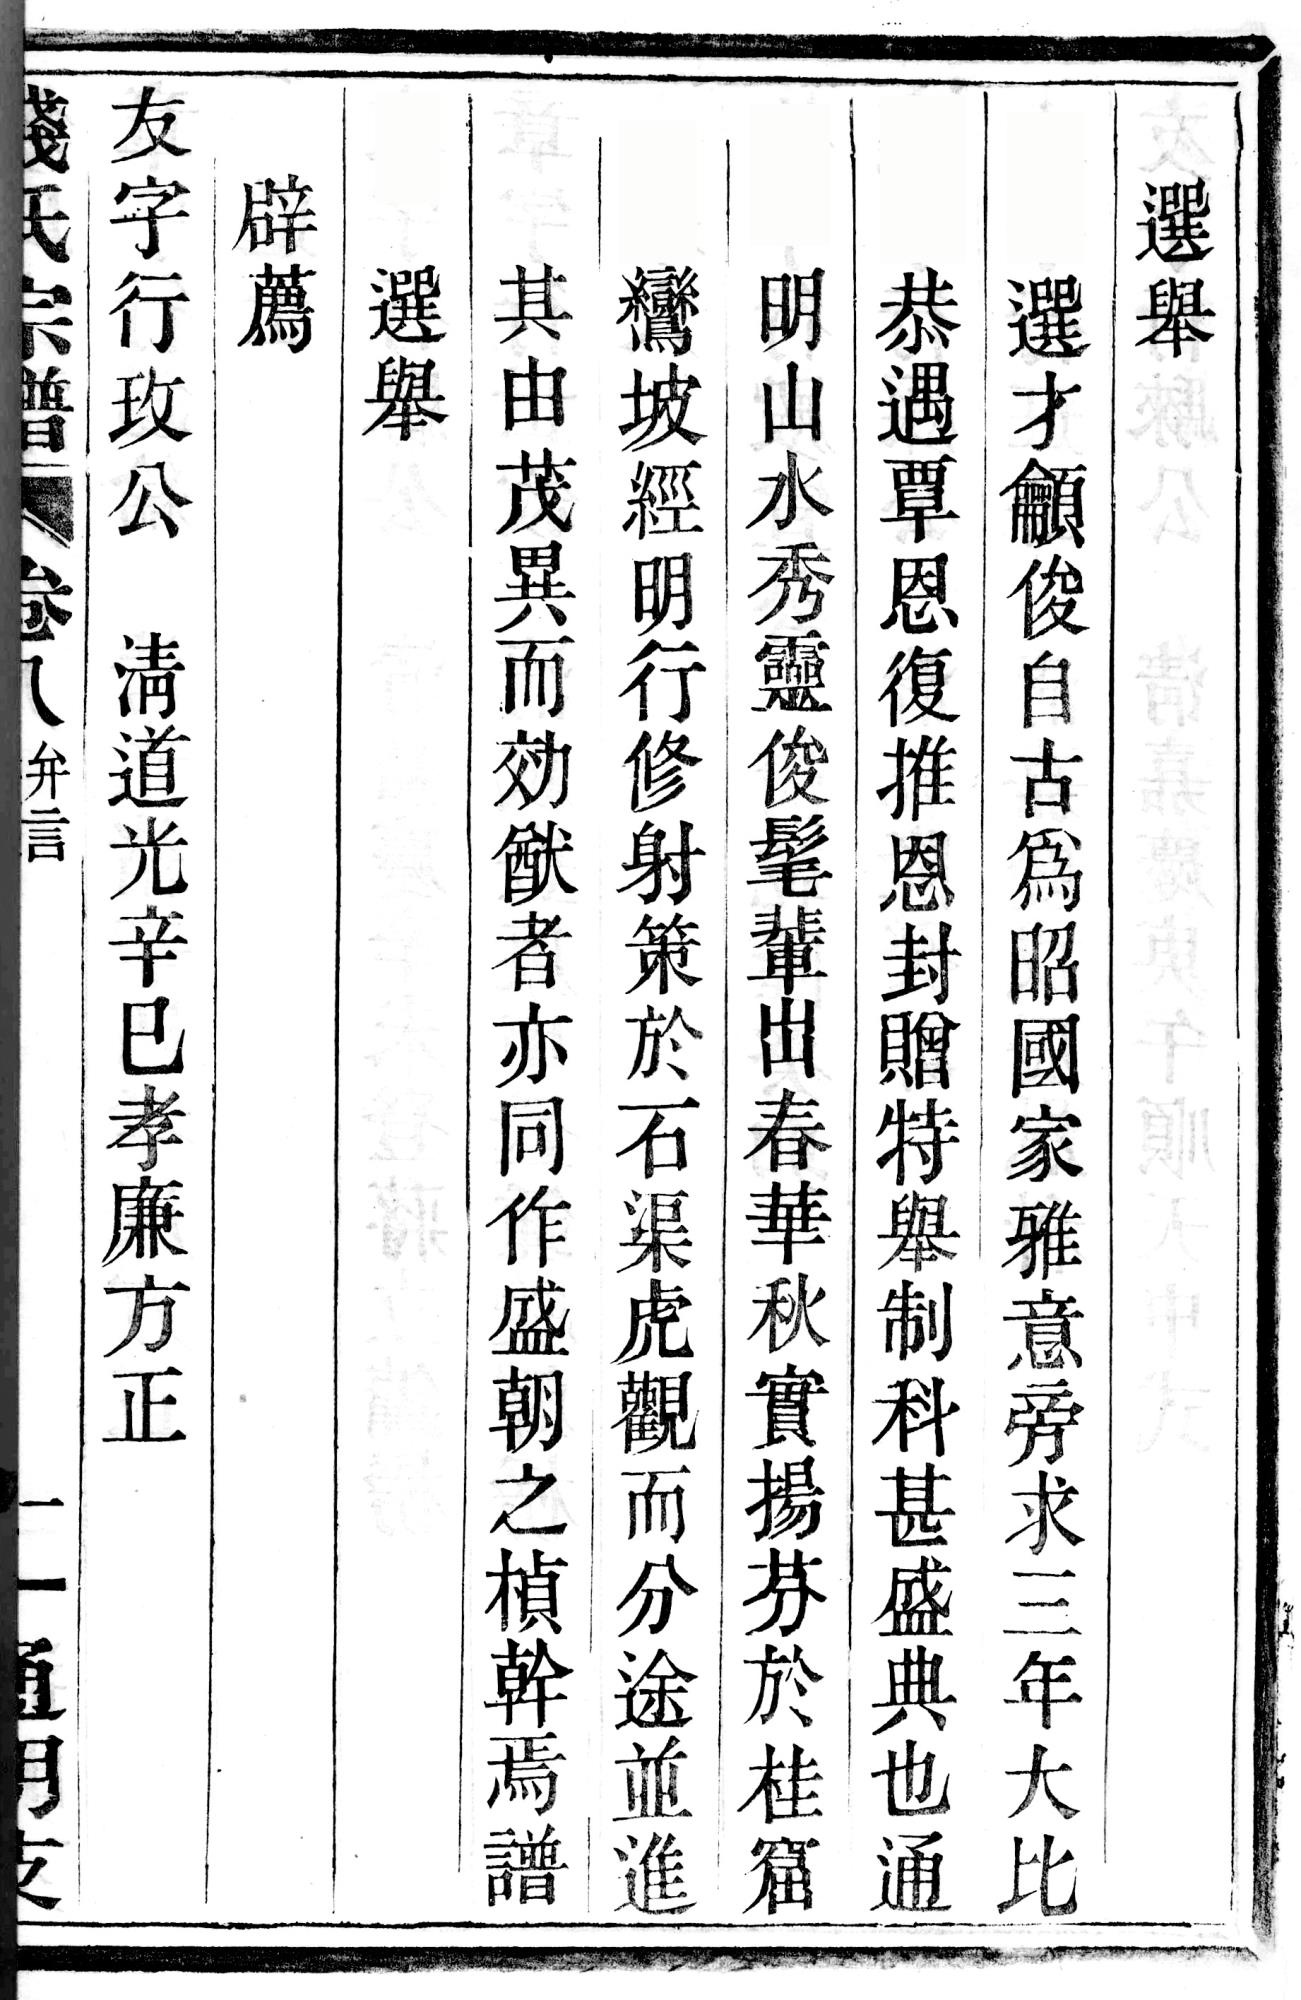 選舉
選才籲俊自古爲昭國家雅意旁求三年大比
恭遇覃恩復推恩封贈特舉制科甚盛典也通
明山水秀靈俊髦輩出春華秋實揚芬於桂窟
鸞坡經明行修射策於石渠虎觀而分途並進
其由茂異而効猷者亦同作盛朝之楨幹焉譜
選舉
辟薦
友字行玫公　淸道光辛巳孝廉方正
錢氏宗譜　卷八　弁言　二　通明支